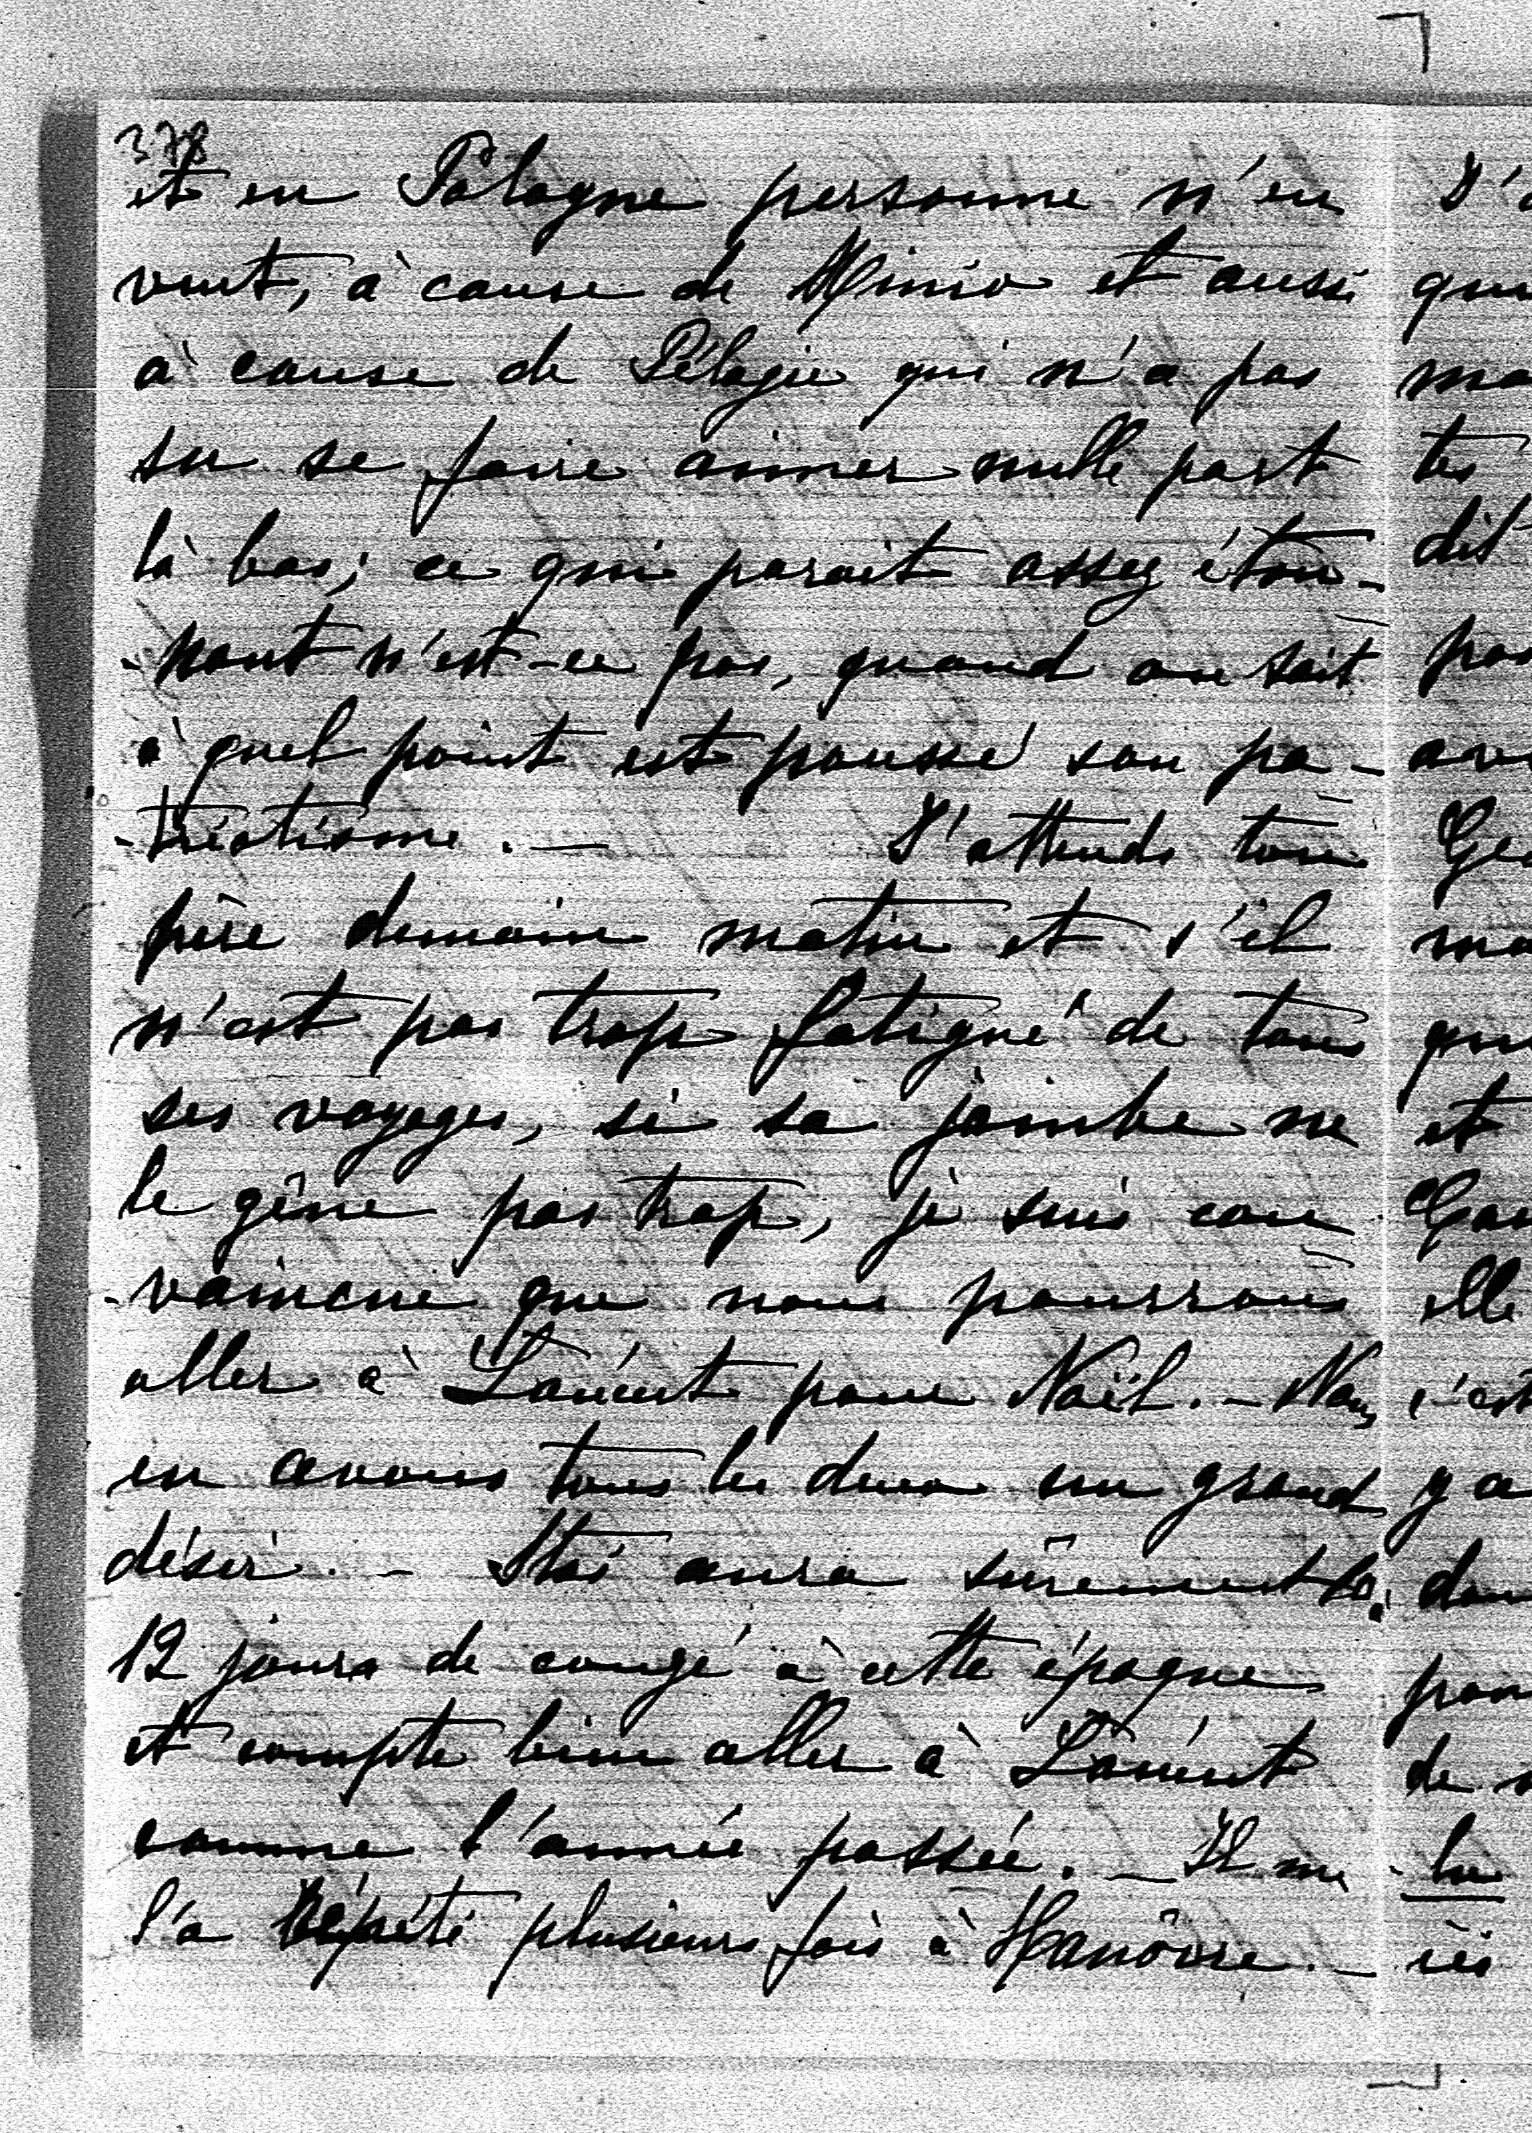 378
et en Pologne personne n'en
veut, à cause de Ninio et aussi
à cause de Pélagie qui n'a pas
su se faire aimer nulle part
là bas; ce qui parait assez éton-
-nant n'est-ce pas, quand on sait
à quel point est poussé son pa-
-triotisme. — J'attends ton
père demain matin et s'il
n'est pas trop fatigué de tous
ses voyages, si sa jambe ne
le gêne pas trop, je suis con
-vaincue que nous pourrons
aller à Lancut pour Noël. - Nous
en avons tous les deux un grand
désir. - aura sûrement 10 à
12 jours de congé à cette époque
et compte bien aller à Lancut
comme l'année passée. - Il me
l'a répété plusieurs fois à Hanôvre. -
J'a
qui
ma
tes
dit
pas
av
Ge
ma
qu
et
Gar
elle
c'est
y a
dan
pou
de
-lu
ici